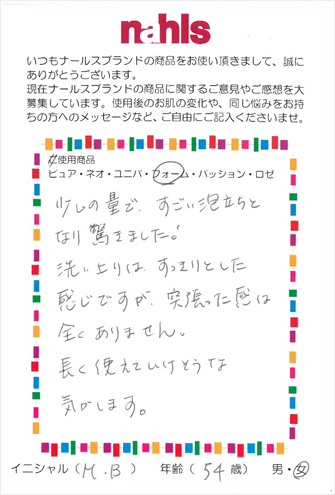 nahls
いつもナールスブランドの商品をお使い頂きまして、誠に
ありがとうございます。
現在ナールスブランドの商品に関するご意見やご感想を大
募集しています。使用後のお肌の変化や、同じ悩みをお持
ちの方へのメッセージなど、ご自由にご記入くださいませ。
使用商品
ピュア・ネオ・ユニバ・フォーム・パッション・ロゼ
少しの量で、すごい泡立ちと
なり驚きました!
洗い上りは、すっきりとした
感じですが、突張った感は
全くありません。
長く使えていけそうな
気がします。
イニシャル(M.B) 年齢(54歳) 男・女